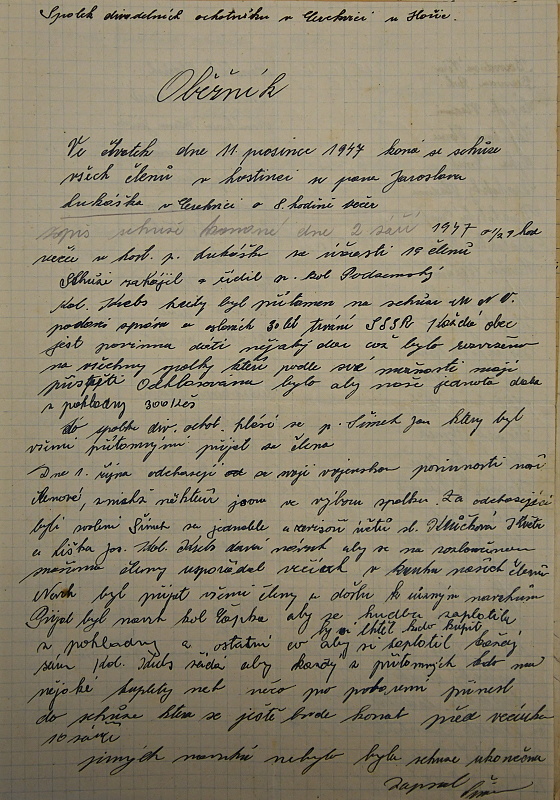 Spolek divadelních ochotníků v Cerekvici u Hořic.
Oběžník
Ve čtvrtek dne 11. prosince 1947 koná se schůze
všech členů v hostinci u pana Jaroslava
Lukáška v Cerekvici o 8. hodině večer
zápis schůze konané dne 2 září 1947 v 1/2 9 hod
večer v host. p. Lukáška za účasti 19 členů
Schůzi zahájil a řídil p. kol Podzemský
Kol. Krebs který byl přítomen na schůzi M N V.
podává zprávu o oslavách 30 let trvání SSSR Každá obec
jest povinna dáti nějaký dar což bylo
na všechny spolky kteří podle své možnosti mají
přispěti Odhlasováno bylo aby naše jednota dala
z pokladny 300 Kčs
do spolku div. ochot. hlásí se p. Šimek Jan který byl
všemi přítomnými přijat za člena
Dne 1. října odcházejí se svojí vojenskou povinností naši
členové, někteří jsou ve výboru spolku. Za odcházející
byli zvoleni Šimek za jednatele a revisoři účtů sl. Květa
a Liška Jos. Kol. Krebs dává návrh aby se na rozloučenou
členy uspořádal večírek v kruhu našich členů
Návrh byl přijat všemi členy a došlo k návrhům
Přijat byl návrh kol Čapka aby se hudba zaplatila
z pokladny a ostatní co by chtěl kdo koupit aby si zaplatil každý
sám Kol. Krebs žádá aby každý z přítomných kdo má
nějaké kuplety neb něco pro pobavení přinesl
do schůze která se ještě bude konat před večírkem
10 září
jiných návrhů nebylo byla schůze ukončena
Zapsal